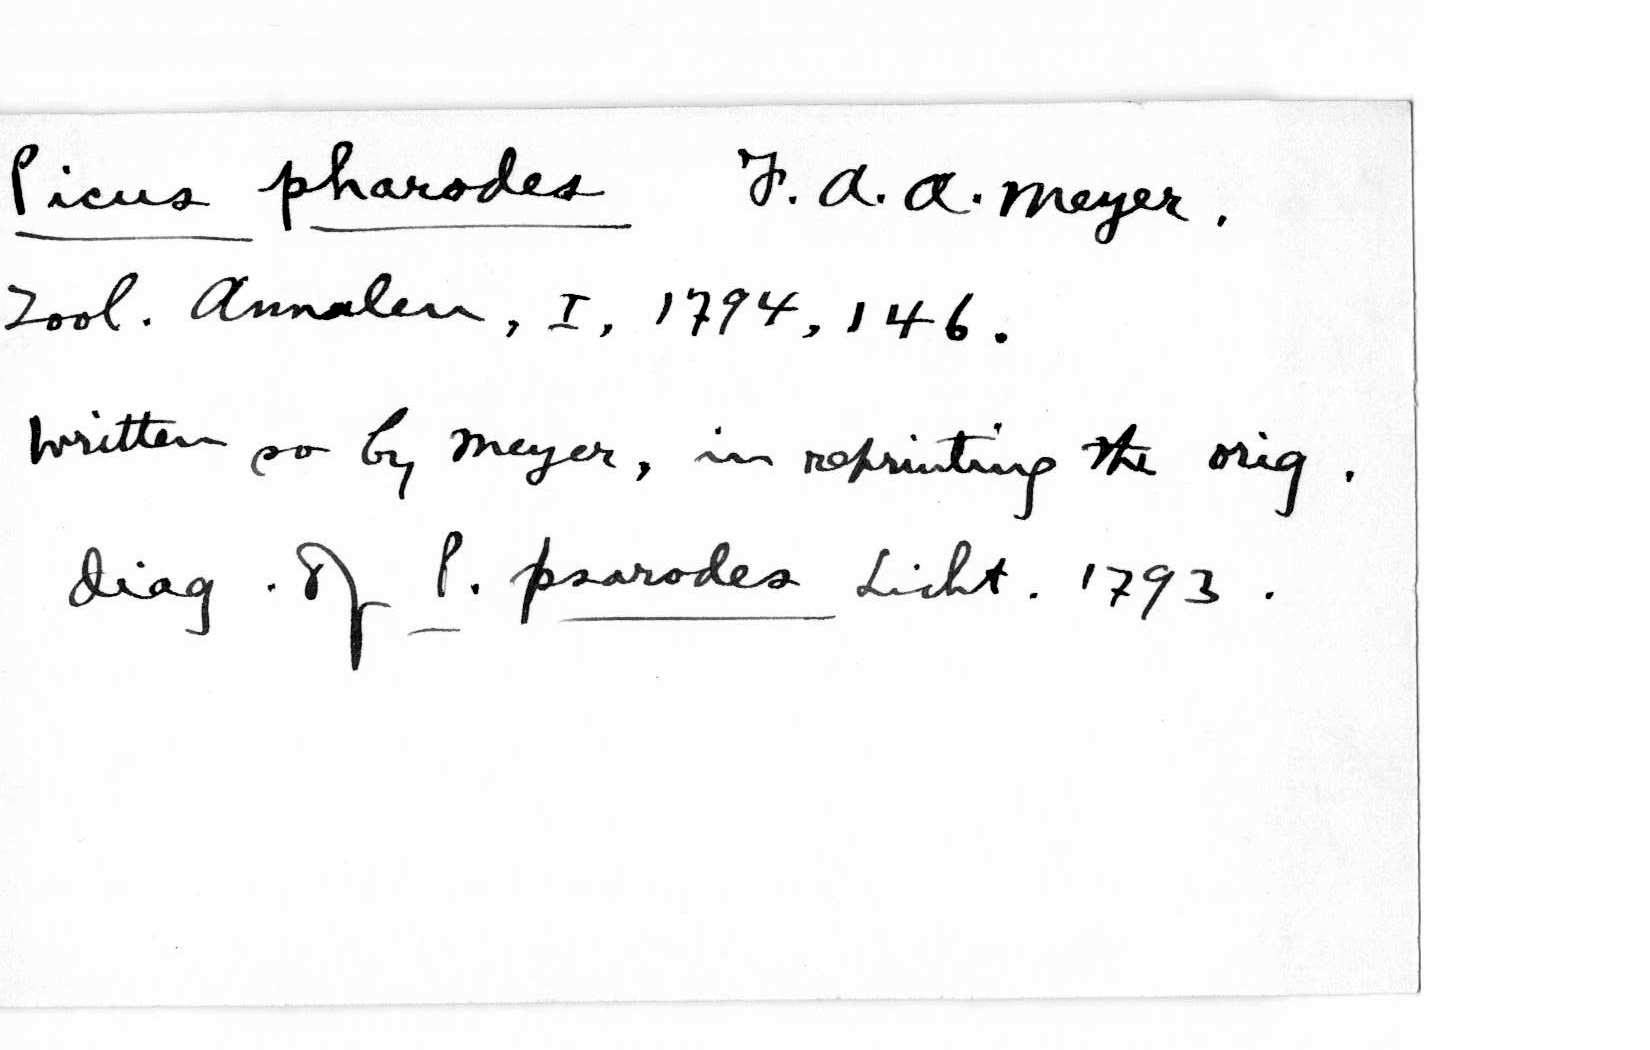 Picus pharodes F. A. A. Meyer.
Zool. Annalen, I, 1794, 146.
Written so by Meyer, in reprinting the orig.
diag. of P. psarodes Licht. 1793.